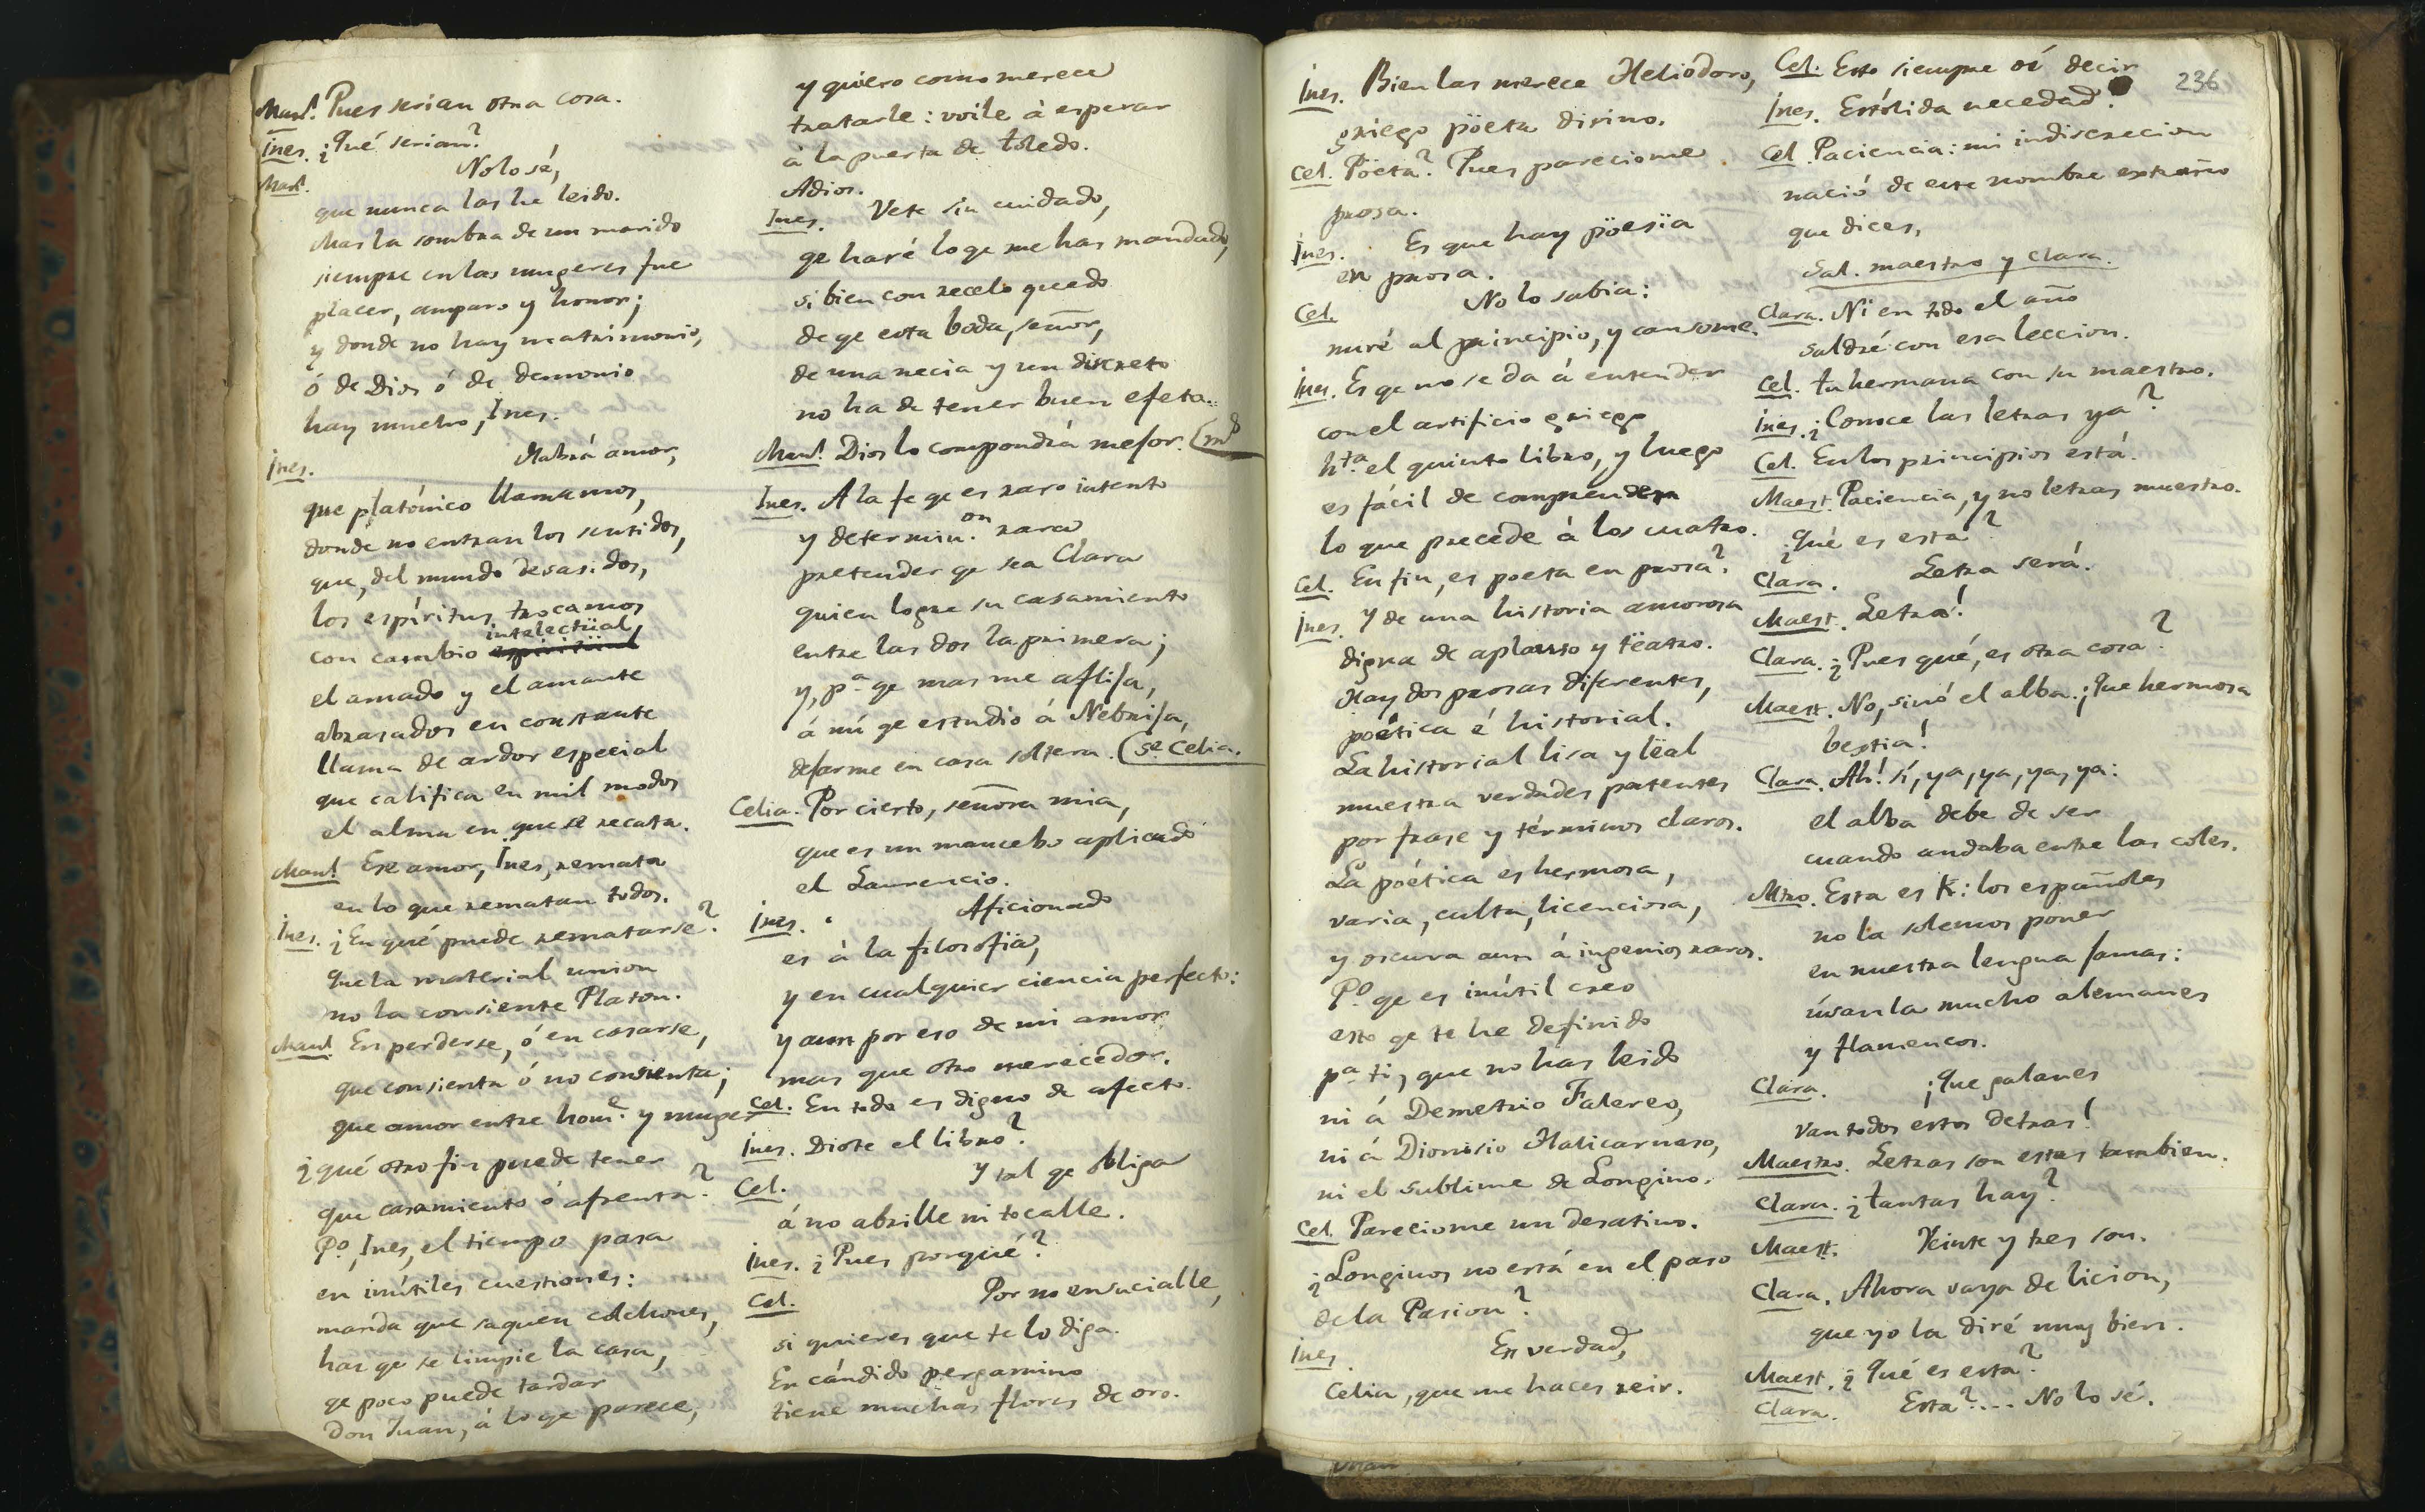 Man.l Pues serian otra cosa.
Ines. ¿Qué serian?
Man.l No lo sé,
que nunca las he leido.
Mas la sombra de un marido
siempre en las mugeres fue
placer, amparo y honor;
y donde no hay matrimonio,
ó de Dios ó de demonio
hay mucho, Ines.
Ines. Habrá amor,
que platónico llamamos,
donde no entran los sentidos,
que, del mundo desasidos,
los espíritus trocamos
con cambio espiritüal intelectüal,
el amado y el amante
abrasados en constante
llama de ardor especial
que califica en mil modos
el alma en que se recata.
Man.l Ese amor, Ines, remata
en lo que rematan todos.
Ines. ¿En qué puede rematarse?
Que la material union
no la consiente Platon.
Man.l En perderse, ó en casarse,
que consienta ó no consienta;
que amor entre hom.e y muger
¿qué otro fin puede tener
que casamiento ó afrenta?
P.o, Ines, el tiempo pasa
en inútiles cuestiones:
manda que saquen colchones,
haz qe se limpie la casa,
qe poco puede tardar
Don Juan, á lo qe parece,
y quiero como merece
tratarle: voile á esperar
á la puerta de Toledo.
Adios.
Ines. Vete sin cuidado,
qe haré lo qe me has mandado,
si bien con recelo quedo
de qe esta boda, señor,
de una necia y un discreto
no ha de tener buen efeto.
Man.l Dios lo compondrá mejor. (m.o
Ines. A la fe qe es raro intento
y determin.on rara
pretender qe sea Clara
quien logre su casamiento
entre las dos la primera;
y, p.a qe mas me aflija,
á mí qe estudio á Nebrija,
dejarme en casa soltera. (S.e Celia.
Celia. Por cierto, señora mia,
que es un mancebo aplicado
el Laurencio.
Ines. Aficionado
es á la filosofïa,
y en cualquier ciencia perfecto:
y aun por eso de mi amor
mas que otro merecedor.
Cel. En todo es digno de afecto.
Ines. Diote el libro?
Cel. Y tal qe obliga
á no abrille ni tocalle.
Ines. ¿Pues porqué?
Cel. Por no ensucialle,
si quieres que te lo diga.
En cándido pergamino
tiene muchas flores de oro.
Ines. Bien las merece Heliodoro,
griego pöeta divino.
Cel. Pöeta? Pues pareciome
prosa.
Ines. Es que hay pöesïa
en prosa.
Cel. No lo sabia:
miré al principio, y cansome.
Ines. Es qe no se da á entender
con el artificio griego
h.ta el quinto libro, y luego
es fácil de comprender
lo que precede á los cuatro.
Cel. En fin, es poeta en prosa?
Ines. Y de una historia amorosa
digna de aplauso y tëatro.
Hay dos prosas diferentes,
poética é historial.
La historial lisa y lëal
muestra verdades patentes
por frase y términos claros.
La poética es hermosa,
varia, culta, licenciosa,
y oscura aun á ingenios raros.
P.o qe es inútil creo
esto qe te he definido
p.a ti, que no has leido
ni á Demetrio Falereo,
ni á Dionisio Halicarnaso,
ni el sublime de Longino.
Cel. Pareciome un desatino.
¿Longinos no está en el paso
de la Pasion?
Ines. En verdad,
Celia, que me haces reir.
236
Cel. Esto siempre oí decir
Ines. Estólida necedad!
Cel. Paciencia: mi indiscrecion
nació de este nombre extraño
que dices,
Sal. maestro y Clara.
Clara. Ni en todo el año
saldré con esa leccion.
Cel. Tu hermana con su maestro.
Ines. ¿Conoce las letras ya?
Cel. En los principios está.
Maest. Paciencia, y no letras muestro.
¿Qué es esta?
Clara. Letra será.
Maest. Letra!
Clara. ¿Pues qué, es otra cosa?
Maest. No, sinó el alba. ¡Que hermosa
bestia!
Clara. Ah! sí, ya, ya, ya, ya:
el alba debe de ser
cuando andaba entre las coles.
Mtro. Esta es K: los españoles
no la solemos poner
en nuestra lengua jamas:
úsanla mucho alemanes
y flamencos.
Clara. ¡Que galanes
van todos estos detras!
Maestro. Letras son estas tambien.
Clara. ¿Tantas hay?
Maest. Veinte y tres son.
Clara. Ahora vaya de licion,
que yo la diré muy bien.
Maest. ¿Qué es esta?
Clara. Esta?.... No lo sé.